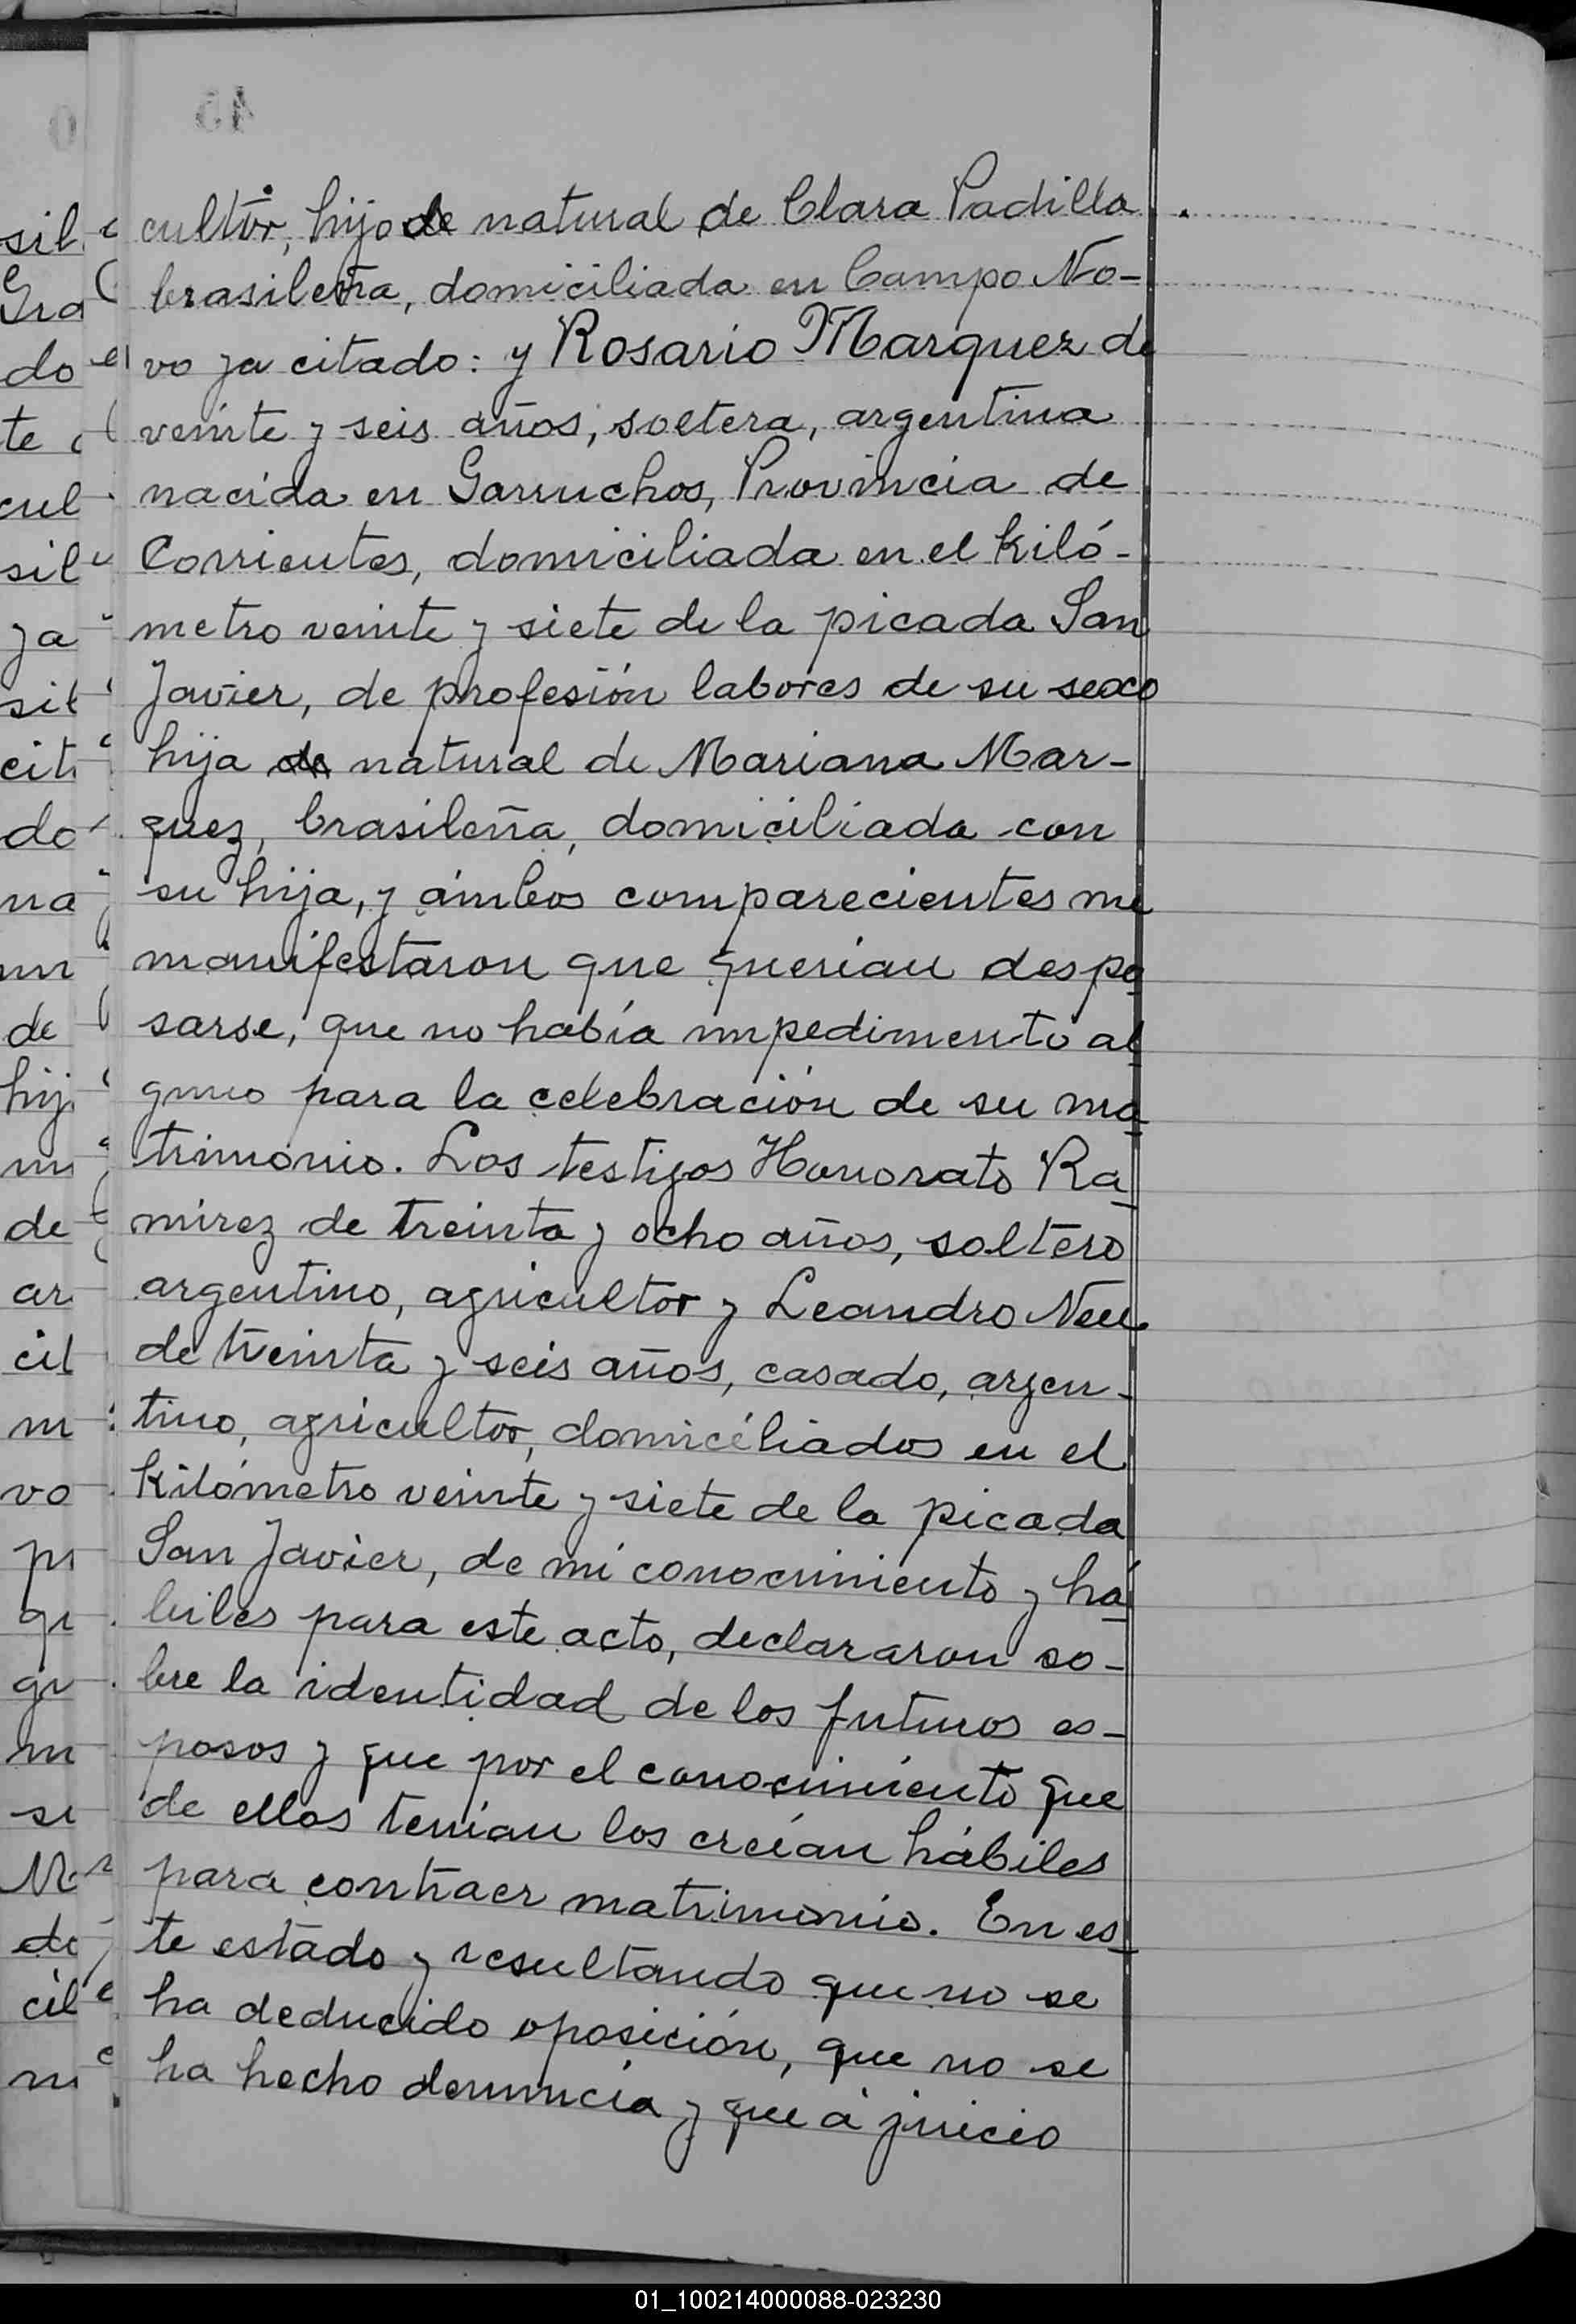 45
cultor, hijo de natural de Clara Padilla
brasileña, domiciliada en Campo No-
vo ya citado: y Rosario Marquez de
veinte y seis años, soltera, argentina
nacida en Garruchos, Provincia de
Corrientes, domiciliada en el kiló-
metro veinte y siete de la picada San
Javier, de profesión labores de su sexo
hija de natural de Mariana Mar-
quez, brasileña, domiciliada con
su hija, y ámbos comparecientes me
manifestaron que querian despo
sarse, que no había impedimento al
guno para la celebración de su ma
trimonio. Los testigos Honorato Ra
mirez de treinta y ocho años, soltero
argentino, agricultor y Leandro Neu
de treinta y seis años, casado, argen-
tino, agricultor, domiciliados en el
kilómetro veinte y siete de la picada
San Javier, de mi conocimiento y há
biles para este acto, declararon so-
bre la identidad de los futuros es-
posos y que por el conocimiento que
de ellos tenían los creían hábiles
para contraer matrimonio. En es
te estado y resultando que no se
ha deducido oposición, que no se
ha hecho denuncia y que á juicio
01_100214000088-023230